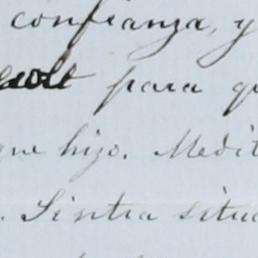 confianza, y
para q
que hizo. Medit
. Sintra situa